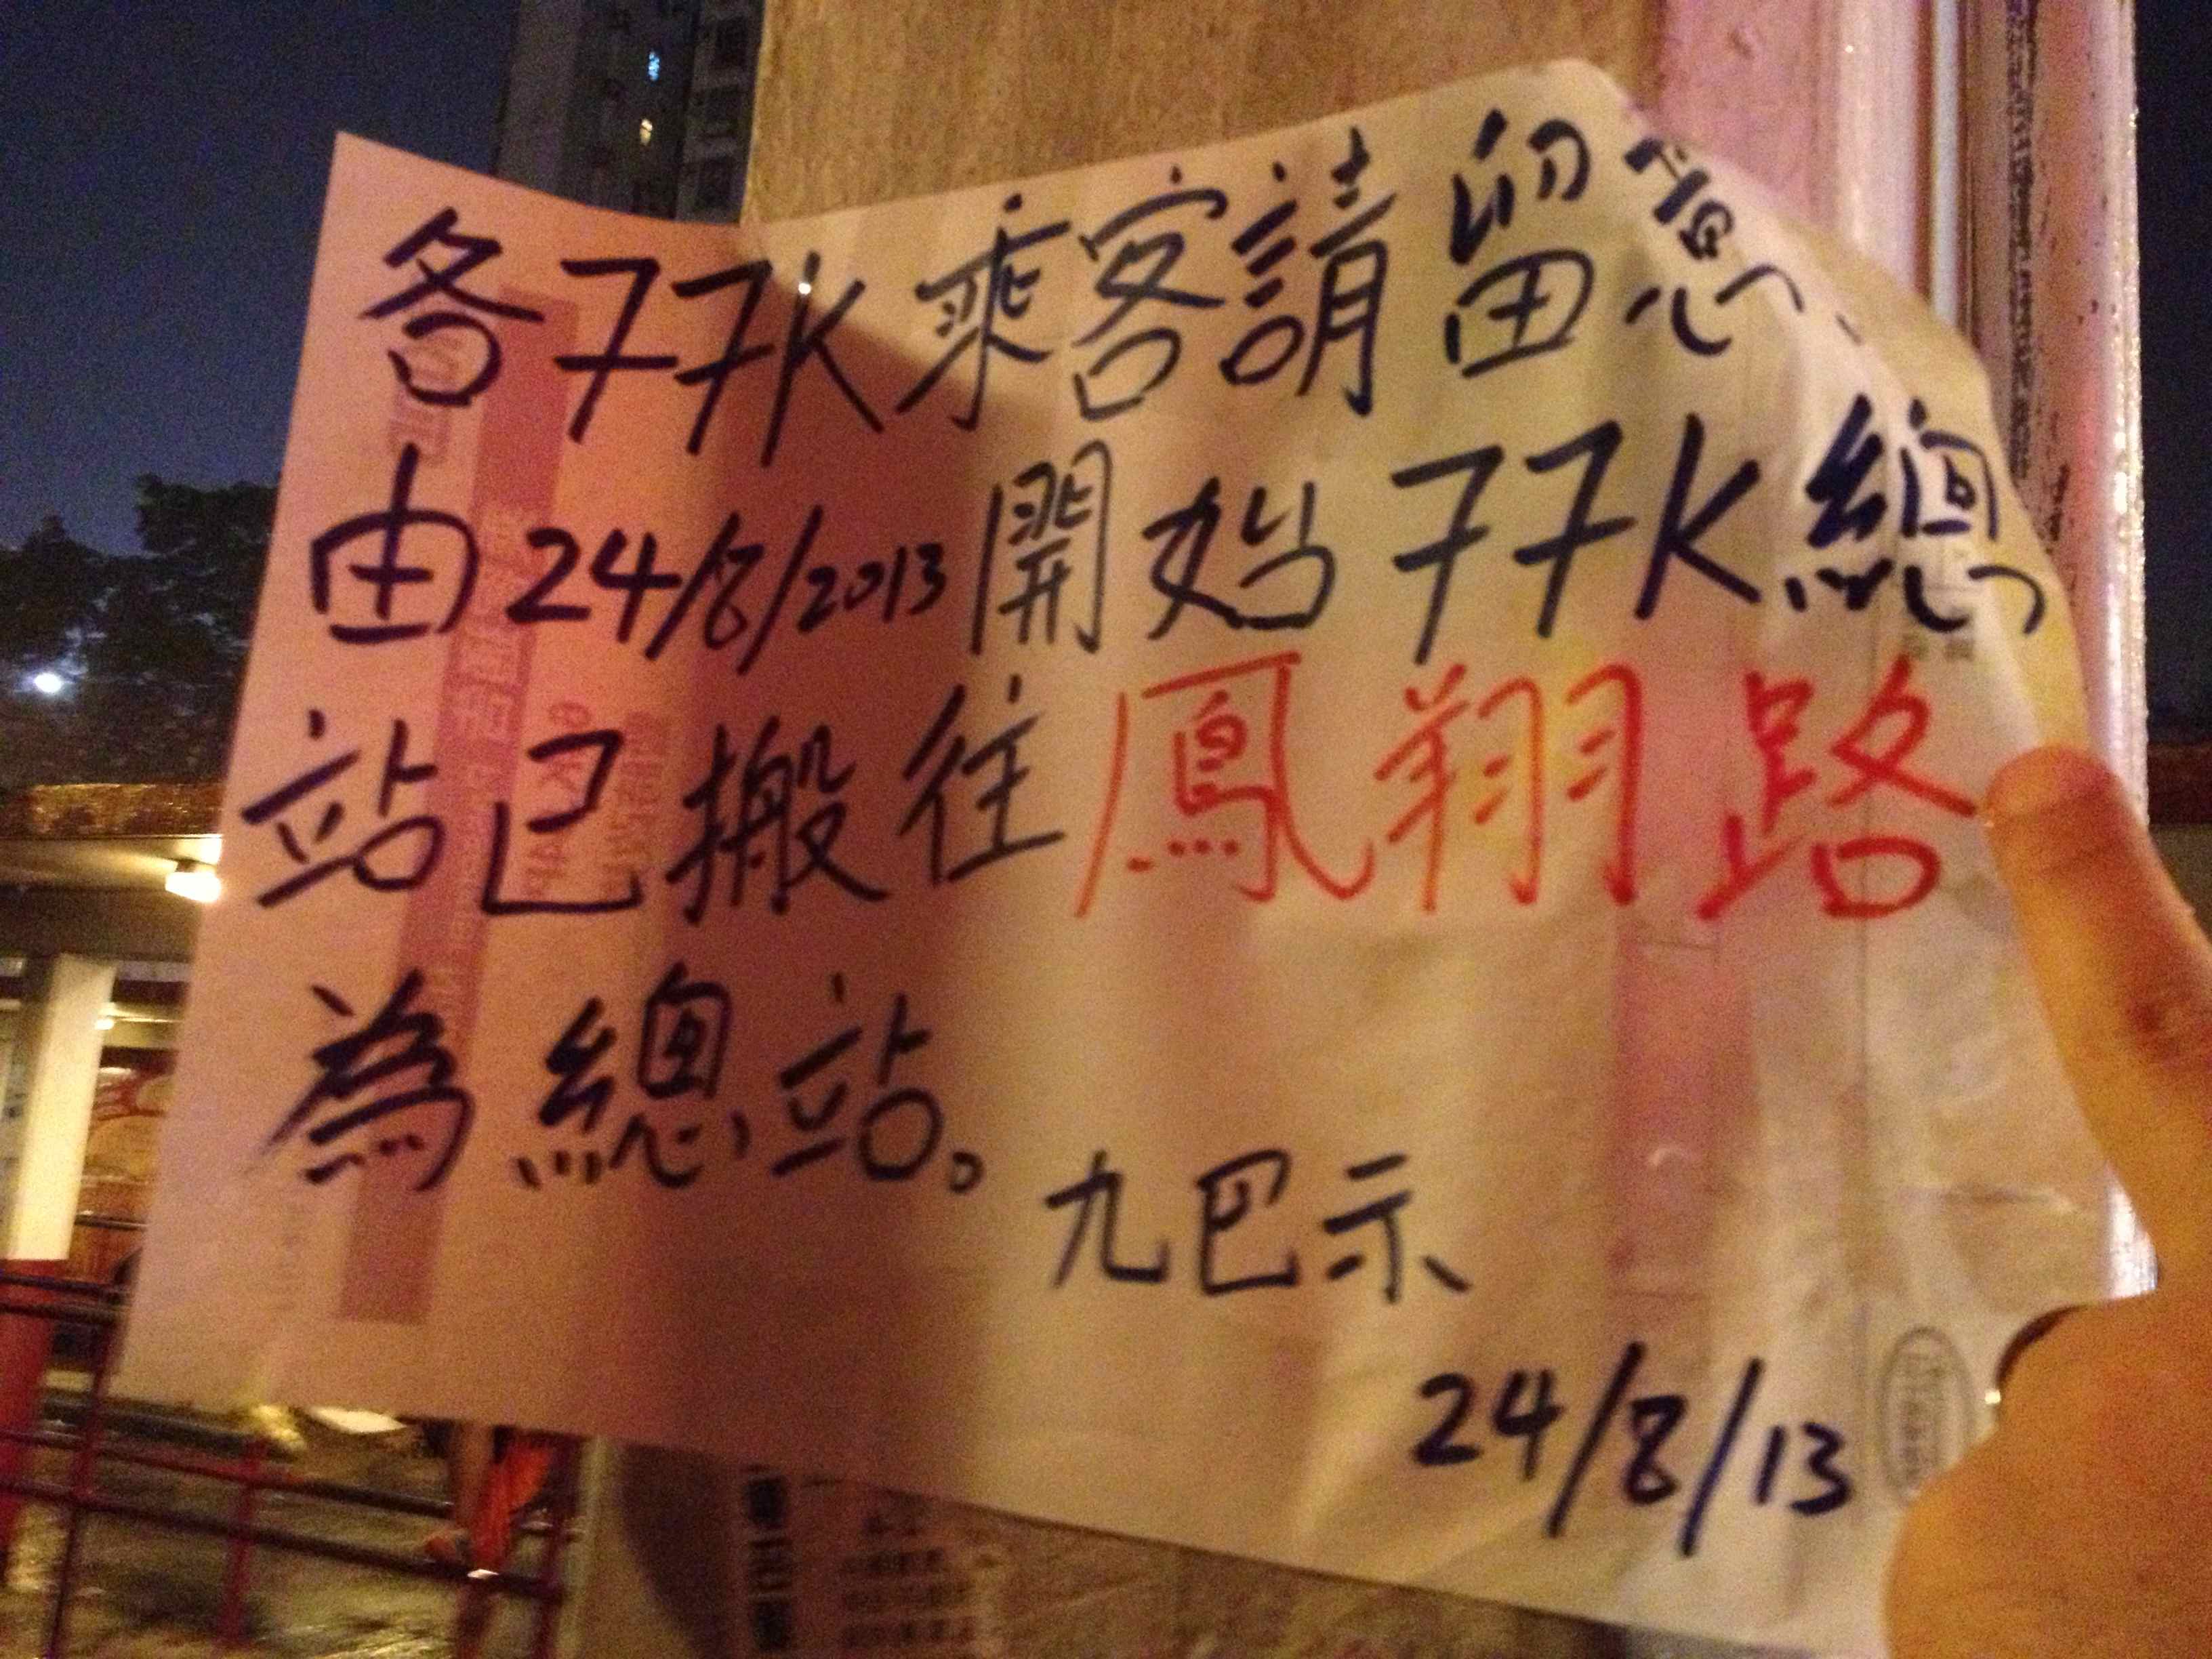 各77K乘客請留意
由24/8/2013開始77K總
站已搬往鳳翔路
為總站。
九巴示
24/8/13